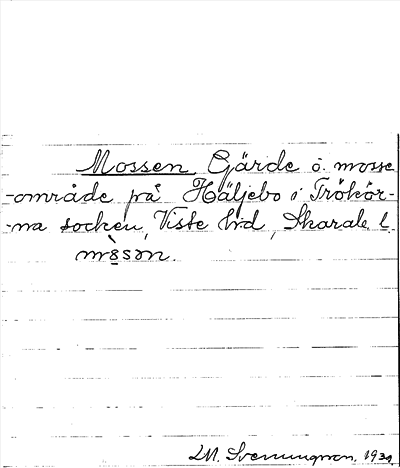 Mossen, Gärde o. mosse
-område på Häljebo i Trökör-
-na socken, Viste hrd, Skarab. l.
mɷ̀sən.
LM. Svenungson, 1930.